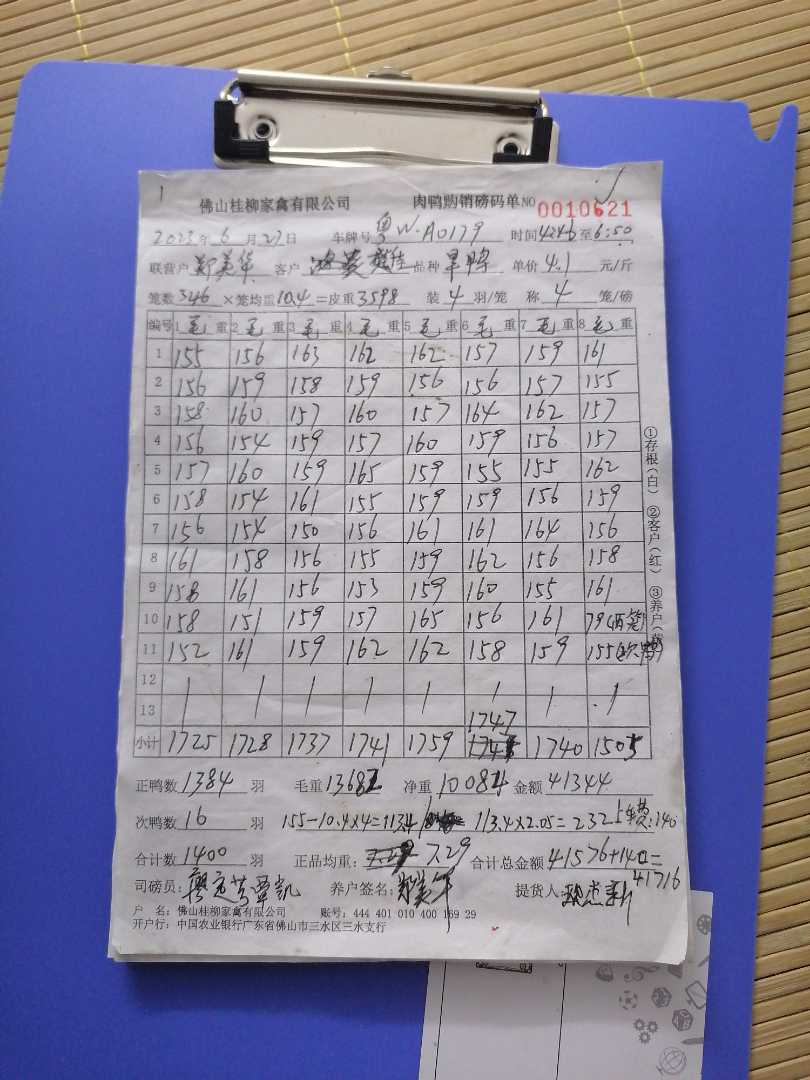 1
佛山桂柳家禽有限公司 肉鸭购销磅码单 NO 0010621
2023年 6月27日 车牌号 粤W·A0179 时间 4:46 至 6:50
联营户 郑美华 客户 品种 旱鸭 单价 4.1 元/斤
笼数 346 ×笼均重 10.4 =皮重 3598 装 4 羽/笼 称 4 笼/磅
编号 1 毛 重 2 毛 重 3 毛 重 4 毛 重 5 毛 重 6 毛 重 7 毛 重 8 毛 重
1 155 156 163 162 162 157 159 161
2 156 159 158 159 156 156 157 155
3 158 160 157 160 157 164 162 157
4 156 154 159 157 160 159 156 157
5 157 160 159 165 159 155 155 162
6 158 154 161 155 159 159 156 159
7 156 154 150 156 161 161 164 156
8 161 158 156 155 159 162 156 158
9 158 161 156 153 159 160 155 161
10 158 151 159 157 165 156 161 79(两笼)
11 152 161 159 162 162 158 159 155
12
13
小计 1725 1728 1737 1741 1759 1747 1740 1505
正鸭数 1384 羽 毛重 13682 净重 10084 金额 41344
次鸭数 16 羽 155-10.4×4=113.4 113.4×2.05=232 车费:140
合计数 1400 羽 正品均重: 7.29 合计总金额 41576+140=
41716
司磅员: 养户签名: 郑美华 提货人:
户 名: 佛山桂柳家禽有限公司 账号: 444 401 010 400 169 29
开户行: 中国农业银行广东省佛山市三水区三水支行
①存根(白) ②客户(红) ③养户(黄)